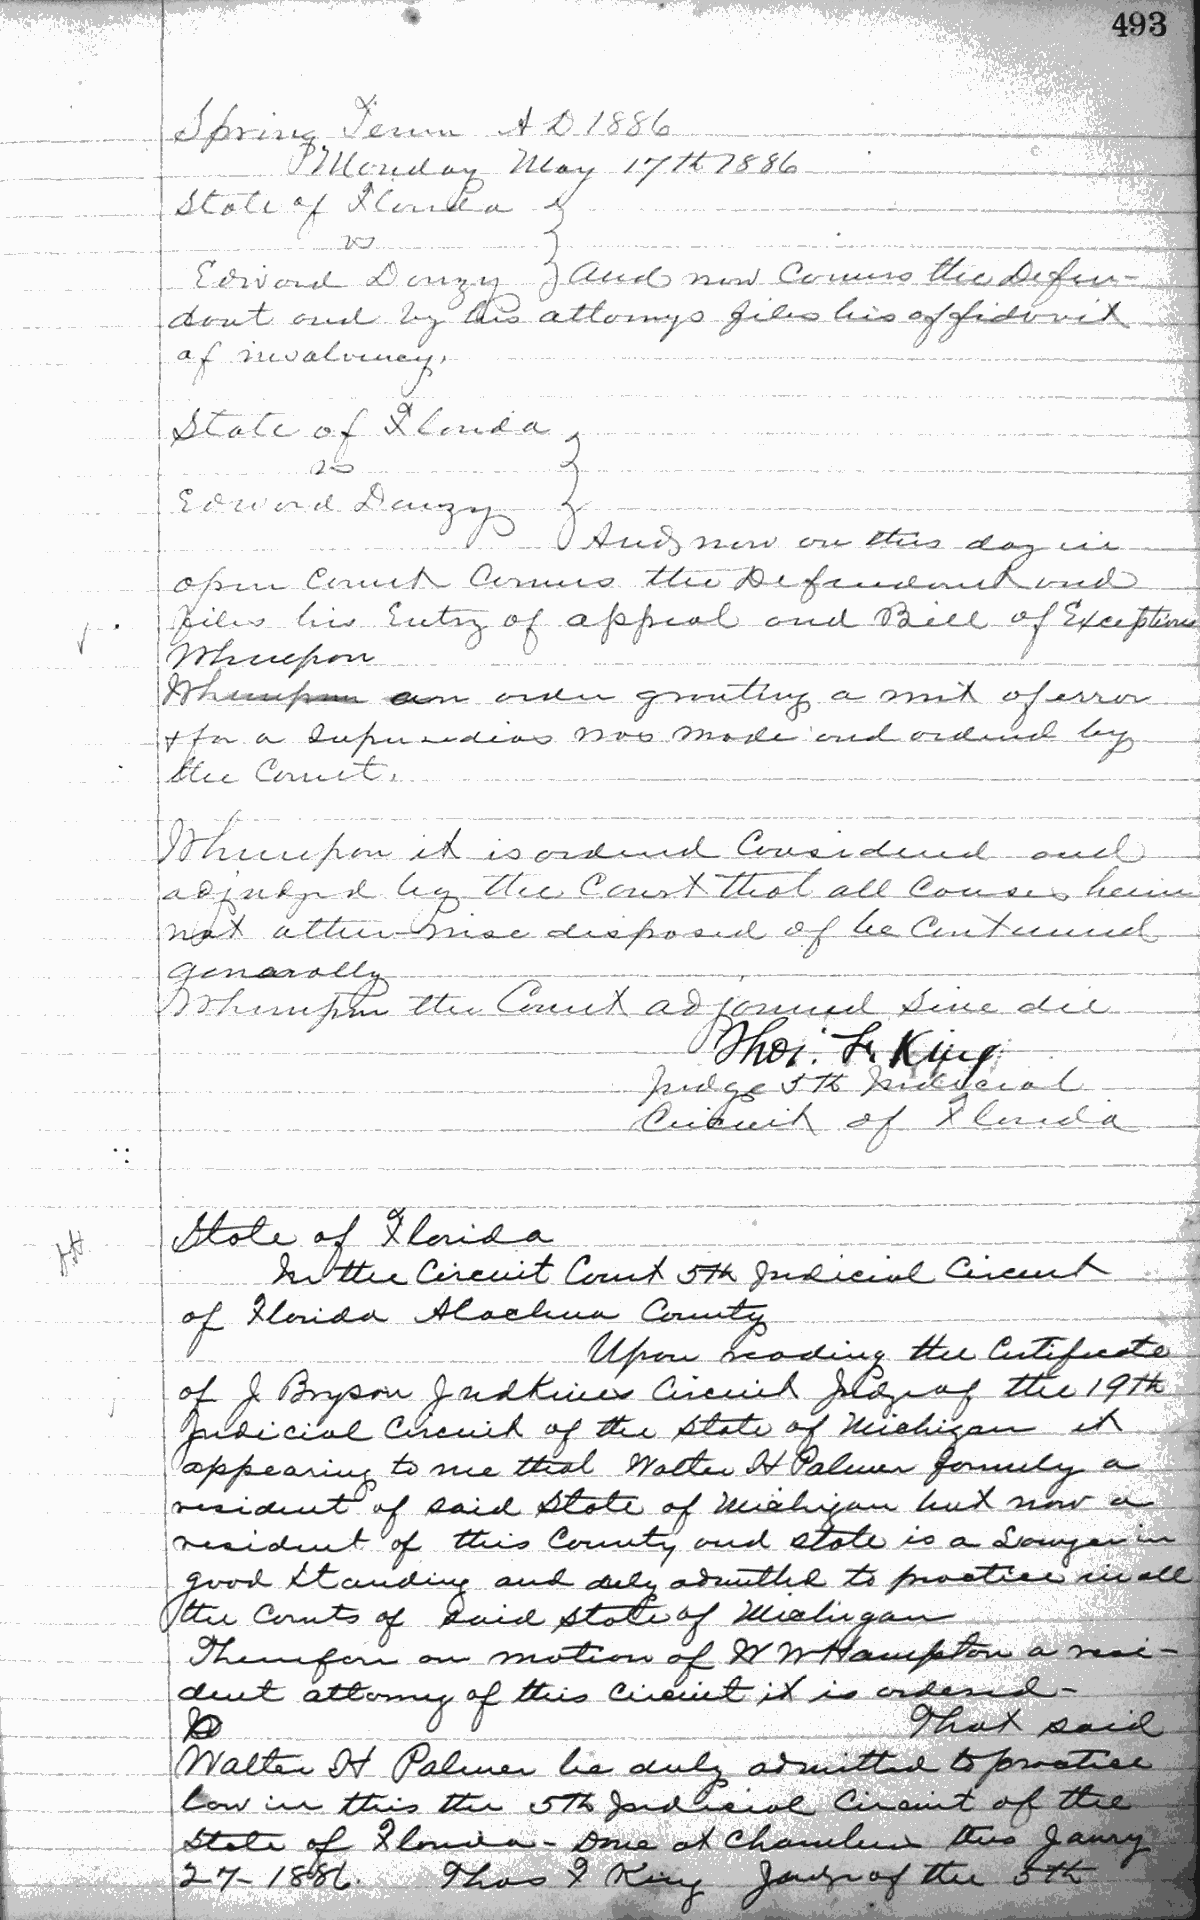 493
Spring Term A D 1886
Monday May 17th 1886
State of Florida }
vs
Edward Danzy } And now Comes the Defen-
dant and by his attornys files his affidavit
of insolvency.
State of Florida }
vs
Edward Danzy
And now on this day in
open Court Comes the Defendant and
files his Entry of appeal and Bill of Exceptions
Whereupon
Whereupon an order granting a writ of error
+ for a Supersedias was made and ordered by
the Court.
Whereupon it is ordered Considered and
adjudged by the Court that all Causes herein
not otherwise disposed of be Continued
generally
Whereupon the Court adjourned Sine die
Thos. F. King
Judge 5th Judicial
Circuit of Florida
State of Florida
In the Circuit Court 5th Judicial Circuit
of Florida Alachua County
Upon reading the Certificate
of J Bryson Judkines Circuit Judge of the 19th
Judicial Circuit of the State of Michigan it
appearing to me that Walter H Palmer formerly a
resident of said State of Michigan but now a
resident of this County and state is a Lawyer in
good standing and duly admitted to practice in all
the Courts of said State of Michigan
Therefore on motion of W W Hampton a resi-
dent attorney of this Circuit it is ordered -
That said
Walter H Palmer be duly admitted to practice
law in this the 5th Judicial Circuit of the
State of Florida - Done at Chambers this Janry
27 - 1886. Thos F King Judge of the 5th